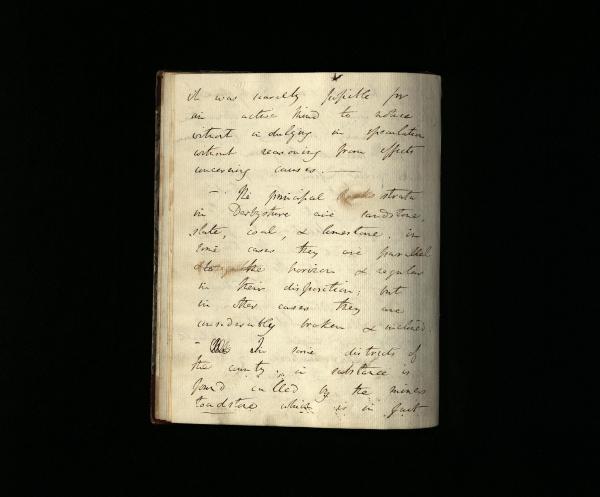 it was scarcely possible for
an active Mind to notice
without indulging in speculation
without reasoning from effects
concerning causes. —
— The principal strata
in Derbyshire are sandstone,
slate, coal, & limestone, in
some cases they are parallel
to the horizon & regular
in their disposition; but
in other cases they are
considerably broken & inclined
— In some districts of
the county, a substance is
found called by the miners
toadstone which is in fact